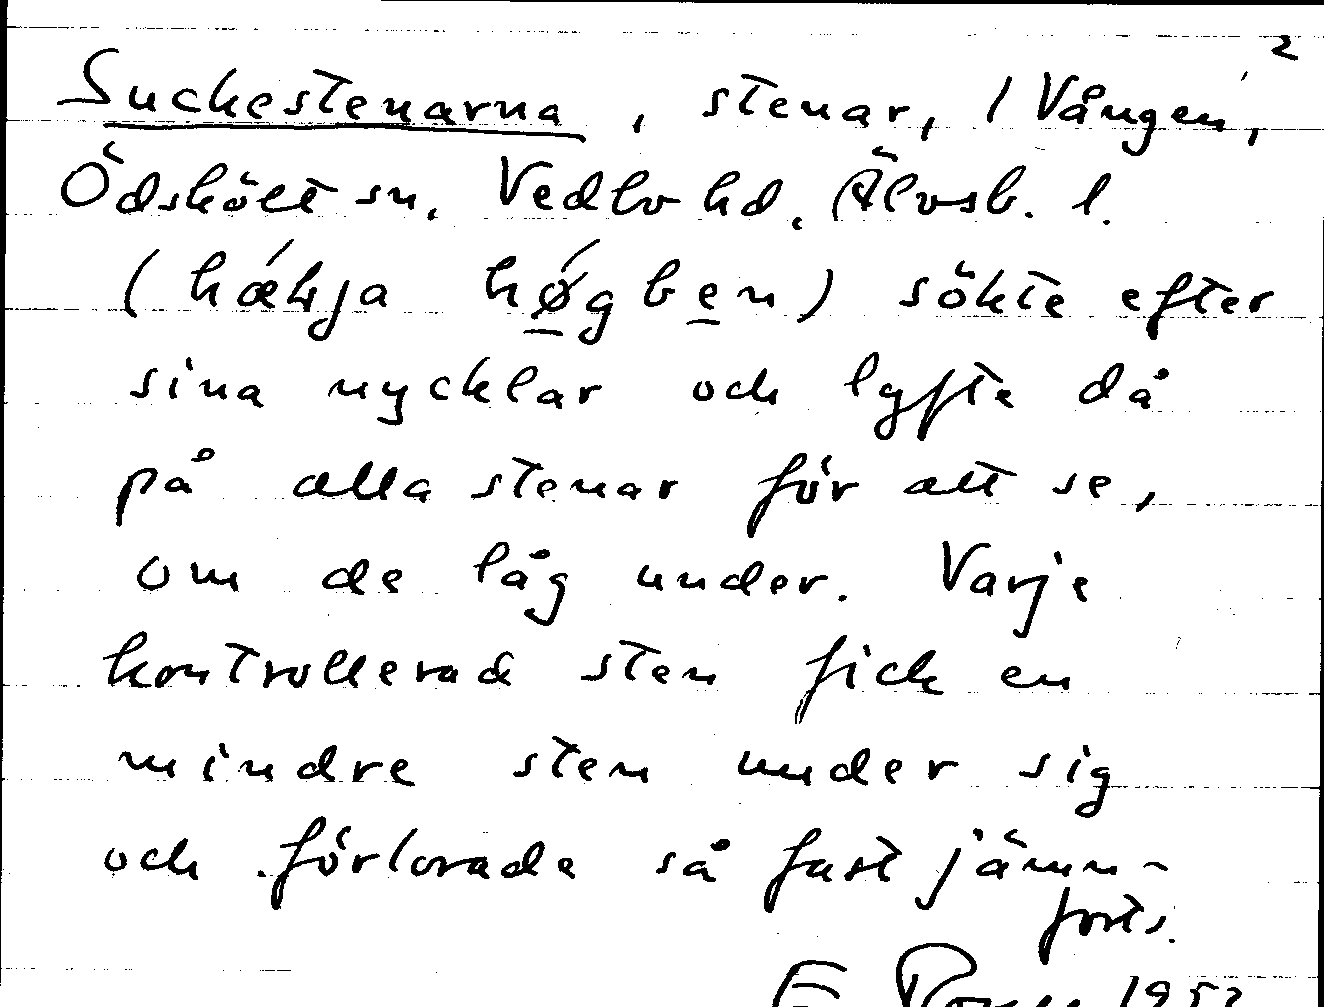 2
Suckestenarna, stenar, / Vången,
Ödskölt sn. Vedbo hd. Älvsb. l.
(hǽkja hǿgben) sökte efter
sina nycklar och lyfte då
på alla stenar för att se,
om de låg under. Varje
kontrollerad sten fick en
mindre sten under sig
och förlorade så fast jämn-
forts.
1952